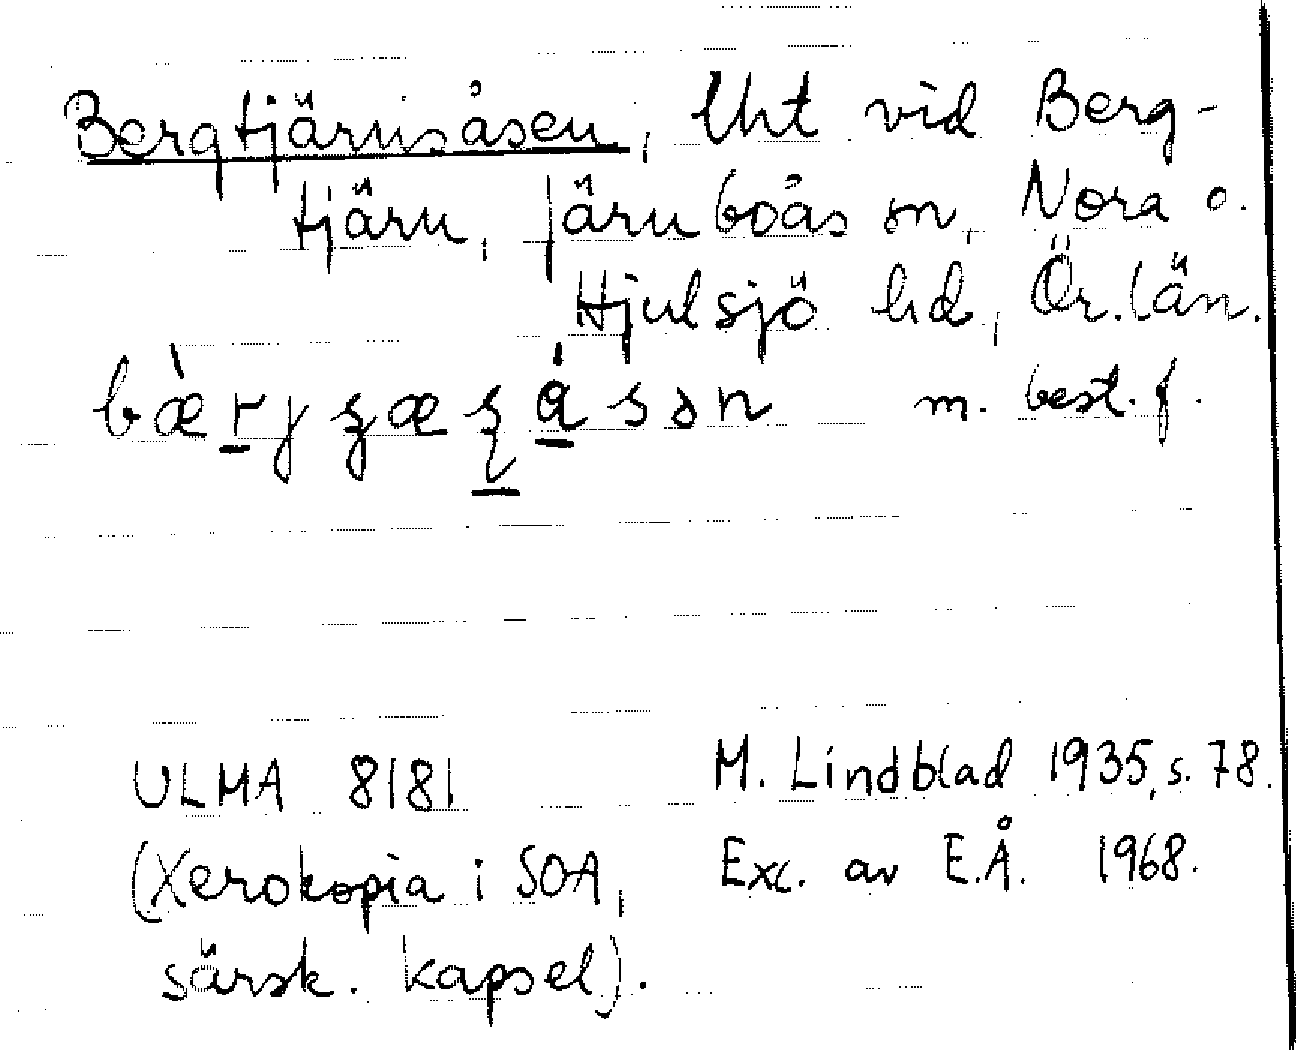 Bergtjärnsåsen, lht vid Berg-
tjärn, Järnboås sn, Nora o.
Hjulsjö hd, Ör. län.
m. best. f.
ULMA 8181 M. Lindblad 1935, s. 78.
(Xerokopia i SOA, Exc. av E.Å. 1968.
särsk. kapsel).